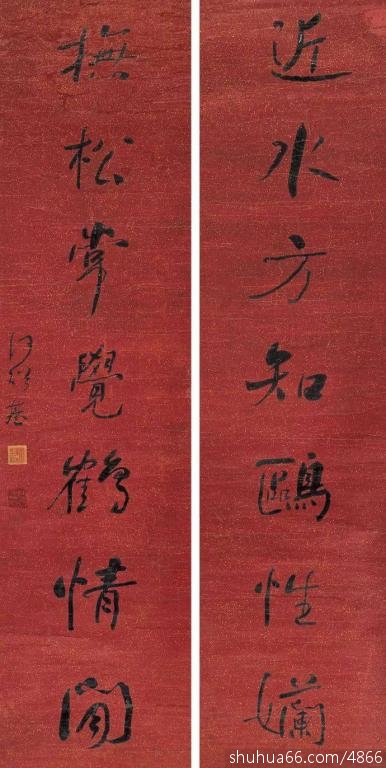 近水方知鷗性嬾
撫松常覺鶴情閒
何紹基
shuhua66.com/4866